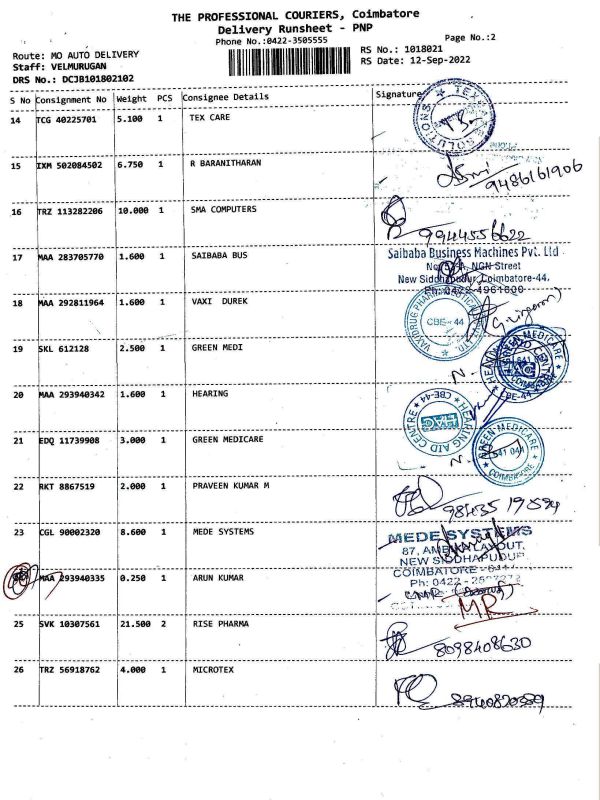 THE PROFESSIONAL COURIERS, Coimbatore
Delivery Runsheet - PNP
Phone No.:0422-3505555
Page No.:2
Route: MO AUTO DELIVERY
RS No.: 1018021
Staff: VELMURUGAN
RS Date: 12-Sep-2022
DRS No.: DCJB101802102
S No Consignment No Weight PCS Consignee Details Signature
14 TCG 40225701 5.100 1 TEX CARE
15 IXM 502084502 6.750 1 R BARANITHARAN
9486161906
16 TRZ 113282206 10.000 1 SMA COMPUTERS
9944556622
17 MAA 283705770 1.600 1 SAIBABA BUS
Saibaba Business Machines Pvt. Ltd
NGN Street
New Siddhapudur, Coimbatore-44.
Ph: 0422-4961600
18 MAA 292811964 1.600 1 VAXI DUREK
CBE-44
19 SKL 612128 2.500 1 GREEN MEDI
20 MAA 293940342 1.600 1 HEARING
HEARING AID CENTRE CBE-44
HAC
21 EDQ 11739908 3.000 1 GREEN MEDICARE
GREEN MEDICARE
641 044
COIMBATORE
22 RKT 8867519 2.000 1 PRAVEEN KUMAR M
23 CGL 90002320 8.600 1 MEDE SYSTEMS
MEDE SYSTEMS
87, LAYOUT,
NEW SIDDHAPUDUR
COIMBATORE - 641
Ph: 0422 -
MAA 293940335 0.250 1 ARUN KUMAR
MR
25 SVK 10307561 21.500 2 RISE PHARMA
8098408630
26 TRZ 56918762 4.000 1 MICROTEX